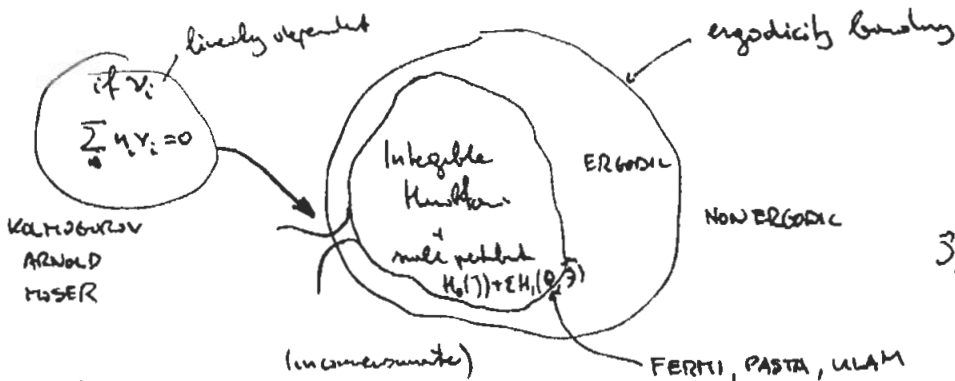 linearly dependent
if ν_i
∑ n_i ν_i = 0
KOLMOGOROV
ARNOLD
MOSER
ergodicity boundary
Integrable
+
H_0(J) + εH_1(θ, J)
ERGODIC
NONERGODIC
3,
(incommensurate)
FERMI, PASTA, ULAM